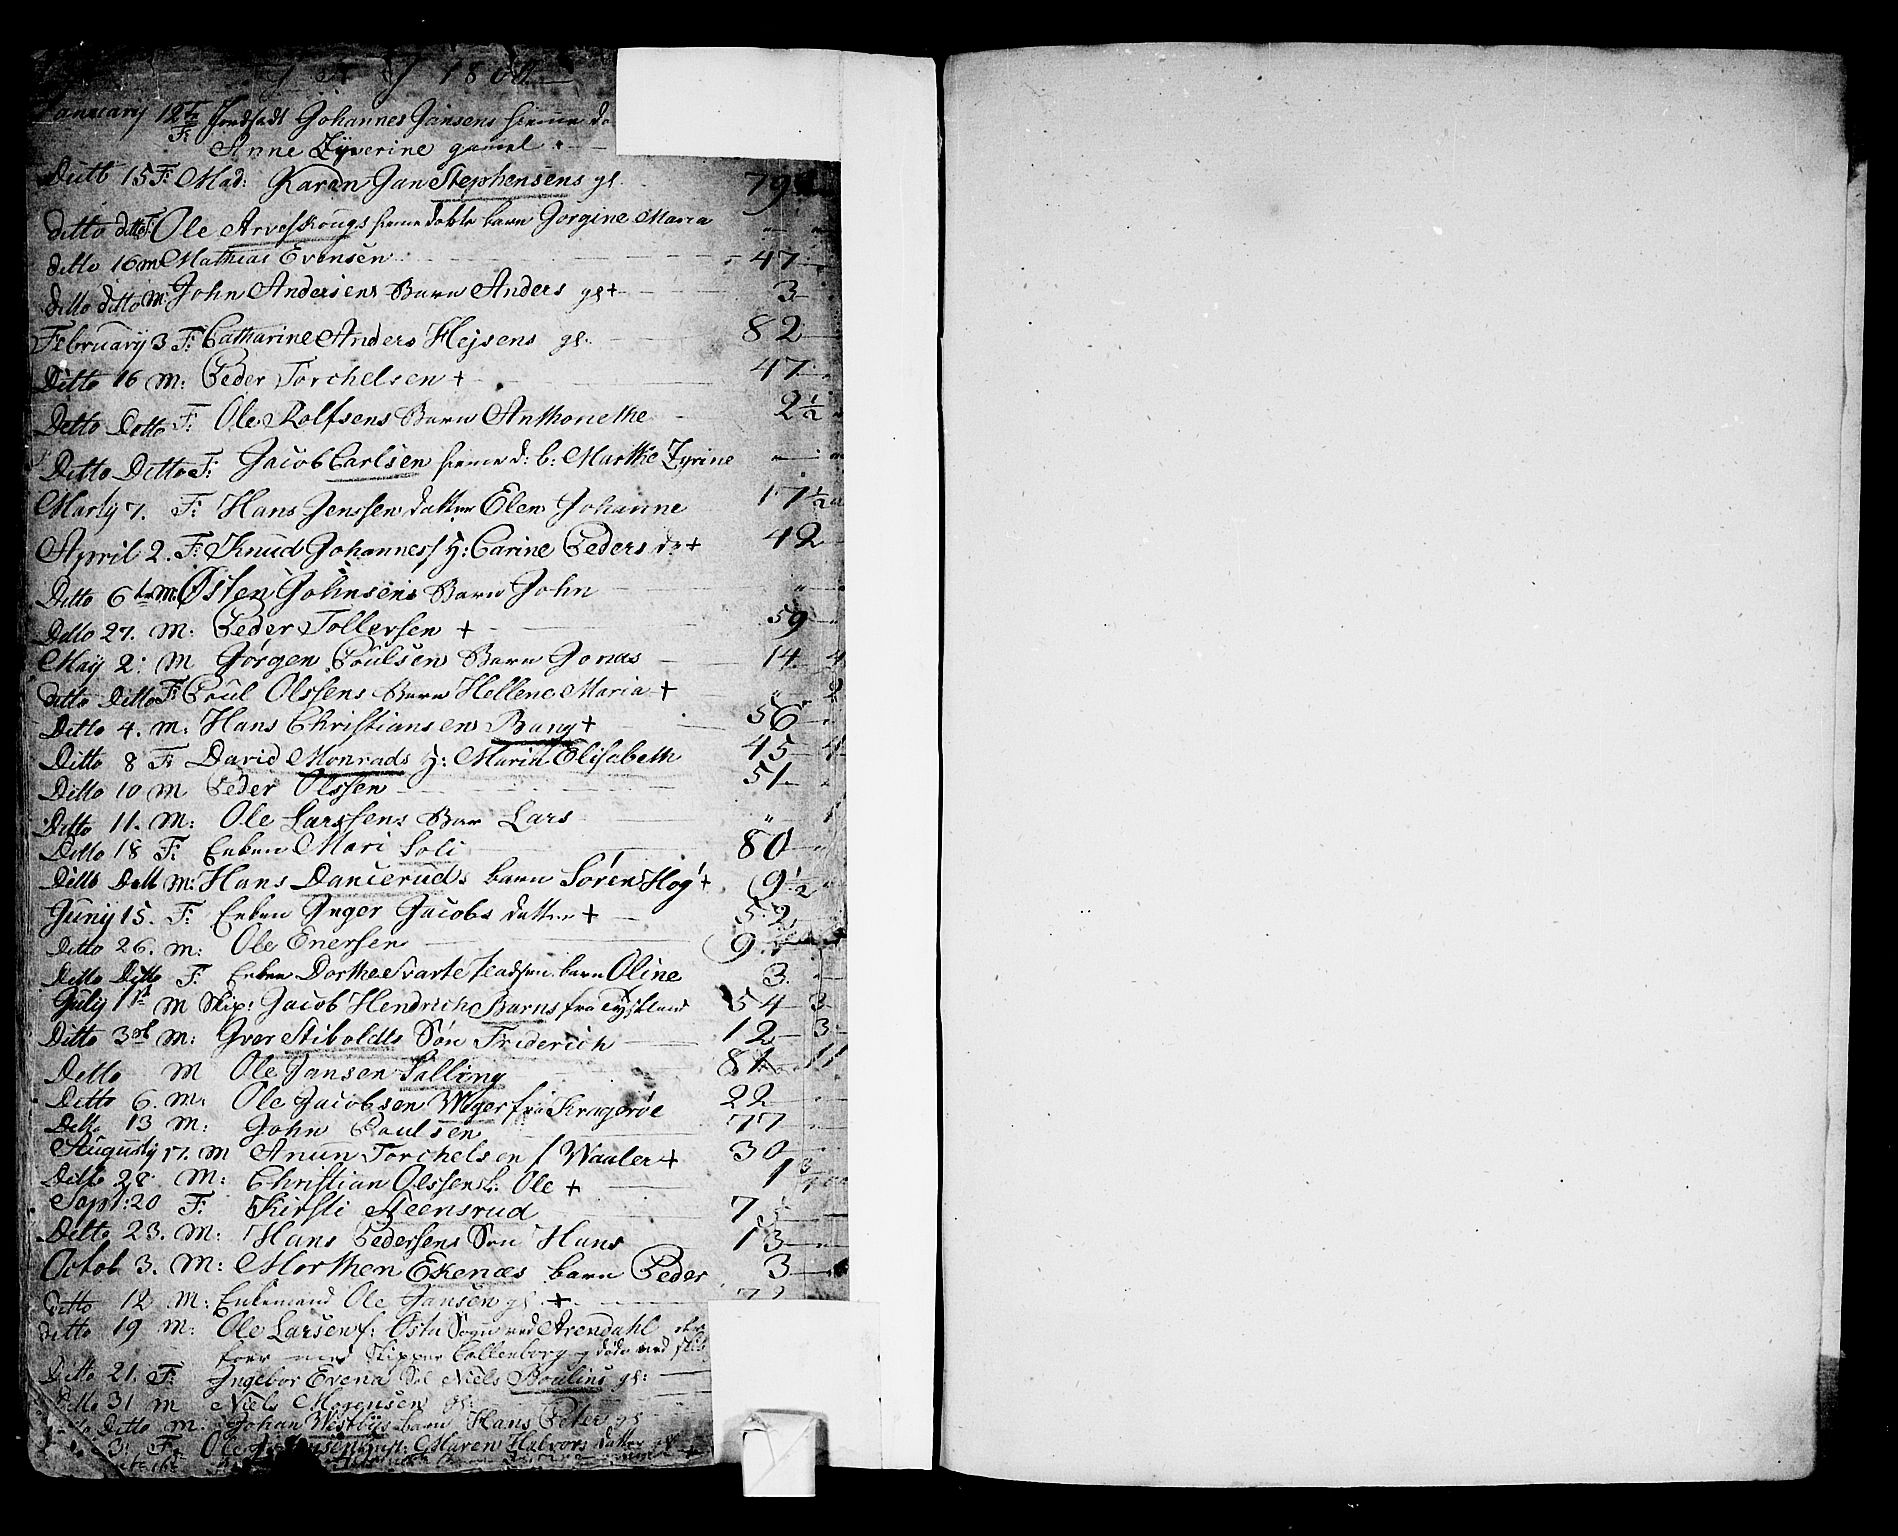 1800
January 12te F: Johannes Jansens hieme d
Anne Zyverine gamel
Ditto 15 F: Mad: Karen Jan Stephensens gl. 79
ditto ditto F: Ole Arveskougs hieme døbte barn Jorgine Maria " "
ditto 16 M Mathias Evensen 47
ditto ditto M: John Andersens Barn Anders gl + 3
February 3 F: Catharine Anders Hejsens gl. 82
Ditto 16 M: Peder Torchelsen + 47
Ditto Ditto F: Ole Rolfsens Barn Anthonethe 2 1/2
Ditto Ditto F: Jacob Carlsen hieme d: b: Marthe Zyrine "
Marty 7. F: Hans Jenssen datter Elen Johanne 17 1/2
April 2. F: Knud Johanness H: Carine Peders da + 42
Ditto 6te M: Østen Johnsens Barn John "
Ditto 27. M: Peder Tollersen + 59
May 2: M Jørgen Poulsen Barn Jonas 14 4
ditto Ditto F: Poul Olssens Barn Hellene Maria + " 2
Ditto 4. M: Hans Christiansen Bang + 56
Ditto 8 F: David Monrads H: Maria Elisabeth 45 4
Ditto 10 M Peder Olssen 51
Ditto 11. M: Ole Larssens Bar Lars " 1
Ditto 18 F: Enken Mari Soli 80
Ditto Ditto M: Hans Danceruds barn Søren Høg + 9 1/2
Juny 15. F: Enken Inger Jacobs datter + 52
Ditto 26. M: Ole Enersen 9
Ditto Ditto F: Enken Dorthe Svarte barn Oline 3
July 1st M Skip: Jacob Hendrich Barns fra Tyskland 54 3
Ditto 3de M: Iver Stiboldts Søn Friderich 12 3
Ditto M Ole Jansen Salling 81 11
Ditto 6. M: Ole Jacobsen Weyer fra Kragerøe 22
Ditto 13 M: John Poulsen 77
Augusty 17. M Anun Torchelsen f Waaler + 30
Ditto 28. M: Christian Olssens b: Ole + 1 3/4
Sept: 20 F: Kirsti Steensrud 7
Ditto 23. M: Hans Pedersens Søn Hans 13
Octob 3. M: Morthen Ekenæs barn Peder 3
Ditto 12 M: Enkemand Ole Jansen gl. + 72
ditto 19 M: Ole Larsen f: Østre Sogn ved Arendahl
foer med Skipper Callenborg og døde ved
Ditto 21. F: Ingebor Evena Niels Boulins gl:
Ditto 31 M Niels Mogensen gl:
Ditto M: Johan Westbys barn Hans Peter gl
3 F: Ole Maren Halvors datter